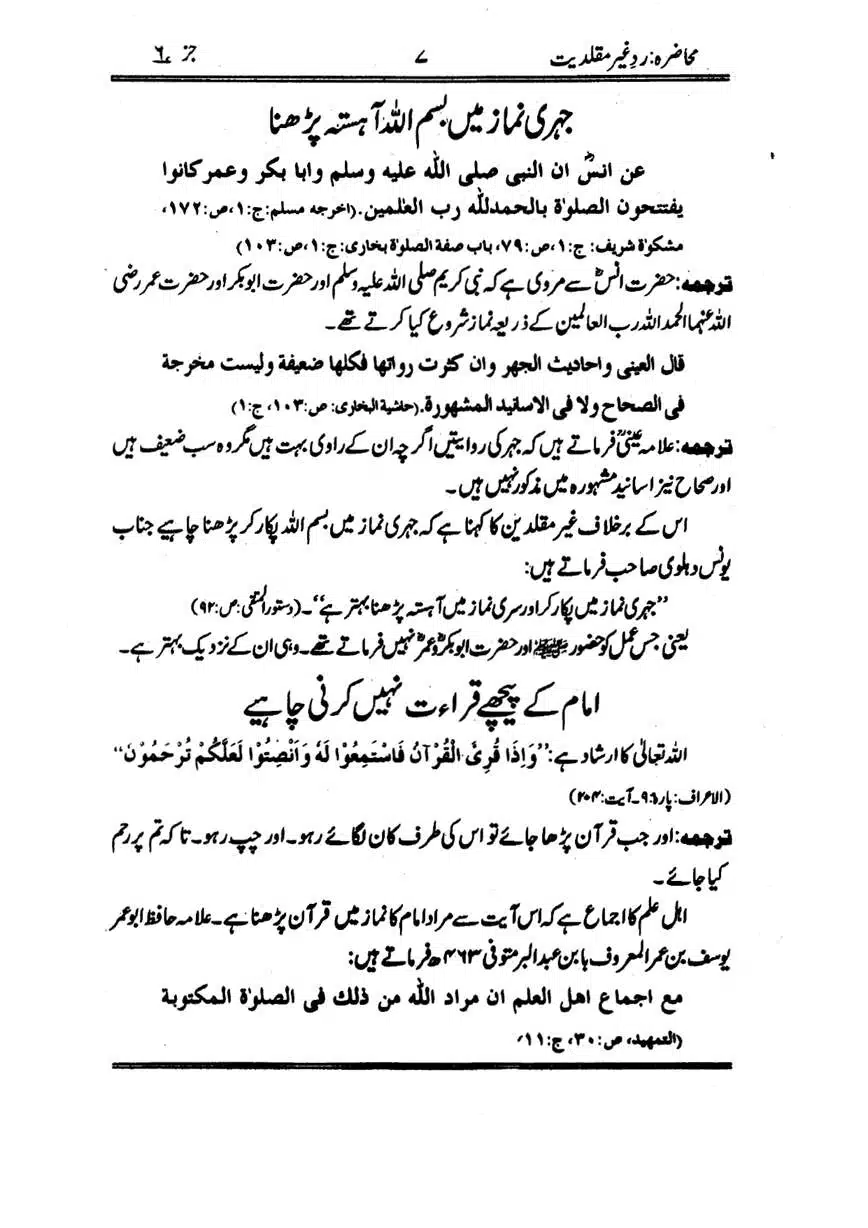 محاضرہ: رد غیر مقلدیت ۷ جز ۶
جہری نماز میں بسم اللہ آہستہ پڑھنا
عن انسؓ ان النبی صلی اللّٰه علیه وسلم وابا بکر وعمر کانوا
یفتتحون الصلوٰۃ بالحمدللّٰه رب العٰلمین.(اخرجه مسلم:ج:۱،ص:۱۷۲،
مشکوٰۃ شریف: ج:۱،ص:۷۹، باب صفة الصلوٰۃ بخاری:ج:۱،ص:۱۰۳)
ترجمہ: حضرت انسؓ سے مروی ہے کہ نبی کریم صلی اللہ علیہ وسلم اور حضرت ابوبکر اور حضرت عمر رضی
اللہ عنہما الحمد اللہ رب العالمین کے ذریعہ نماز شروع کیا کرتے تھے۔
قال العینی واحادیث الجهر وان کثرت رواتها فکلها ضعیفة ولیست مخرجة
فی الصحاح ولا فی الاسانید المشهورة.(حاشیة البخاری: ص:۱۰۳، ج:۱)
ترجمہ: علامہ عینیؒ فرماتے ہیں کہ جہر کی روایتیں اگرچہ ان کے راوی بہت ہیں مگر وہ سب ضعیف ہیں
اور صحاح نیز اسانید مشہورہ میں مذکور نہیں ہیں۔
اس کے برخلاف غیر مقلدین کا کہنا ہے کہ جہری نماز میں بسم اللہ پکار کر پڑھنا چاہیے جناب
یونس دہلوی صاحب فرماتے ہیں:
”جہری نماز میں پکار کر اور سری نماز میں آہستہ پڑھنا بہتر ہے“۔(دستور المتقی:ص:۹۲)
یعنی جس عمل کو حضور ﷺ اور حضرت ابوبکرؓ وعمرؓ نہیں فرماتے تھے۔ وہی ان کے نزدیک بہتر ہے۔
امام کے پیچھے قراءت نہیں کرنی چاہیے
اللہ تعالیٰ کا ارشاد ہے: ”وَاِذَا قُرِئَ الْقُرْآنُ فَاسْتَمِعُوْا لَهٗ وَاَنْصِتُوْا لَعَلَّكُمْ تُرْحَمُوْنَ“
(الاعراف: پارہ۹۔آیت:۲۰۴)
ترجمہ: اور جب قرآن پڑھا جائے تو اس کی طرف کان لگائے رہو۔ اور چپ رہو۔ تاکہ تم پر رحم
کیا جائے۔
اہل علم کا اجماع ہے کہ اس آیت سے مراد امام کا نماز میں قرآن پڑھنا ہے۔ علامہ حافظ ابو عمر
یوسف بن عمر المعروف بابن عبدالبر متوفی ۴۶۳ھ فرماتے ہیں:
مع اجماع اهل العلم ان مراد اللّٰه من ذلك فی الصلوٰۃ المکتوبة
(التمهید، ص:۳۰، ج:۱۱)